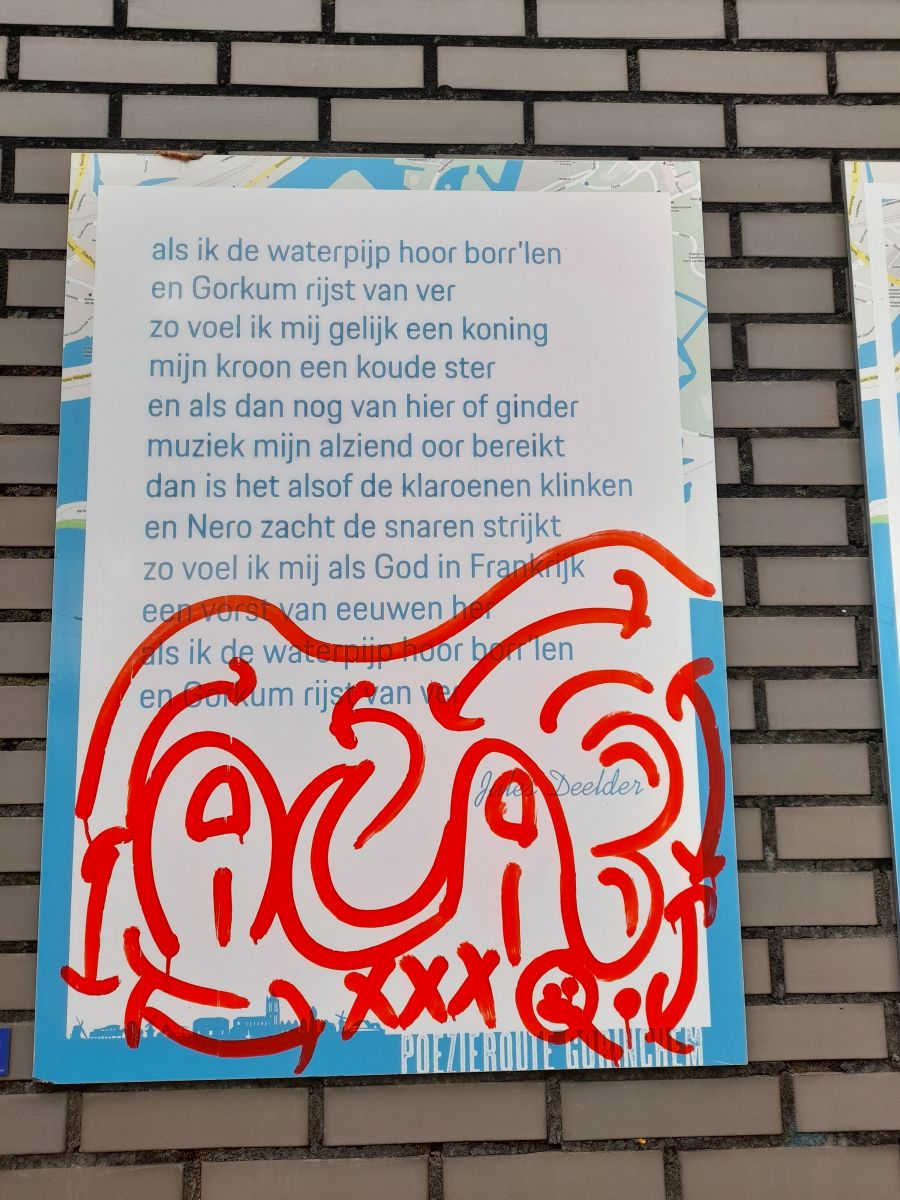 als ik de waterpijp hoor borr'len
en Gorkum rijst van ver
zo voel ik mij gelijk een koning
mijn kroon een koude ster
en als dan nog van hier of ginder
muziek mijn alziend oor bereikt
dan is het alsof de klaroenen klinken
en Nero zacht de snaren strijkt
zo voel ik mij als God in Frankrijk
een vorst van eeuwen her
als ik de waterpijp hoor borr'len
en Gorkum rijst van ver
Jules Deelder
ACAB
XXX
POEZIEROUTE GORINCHEM